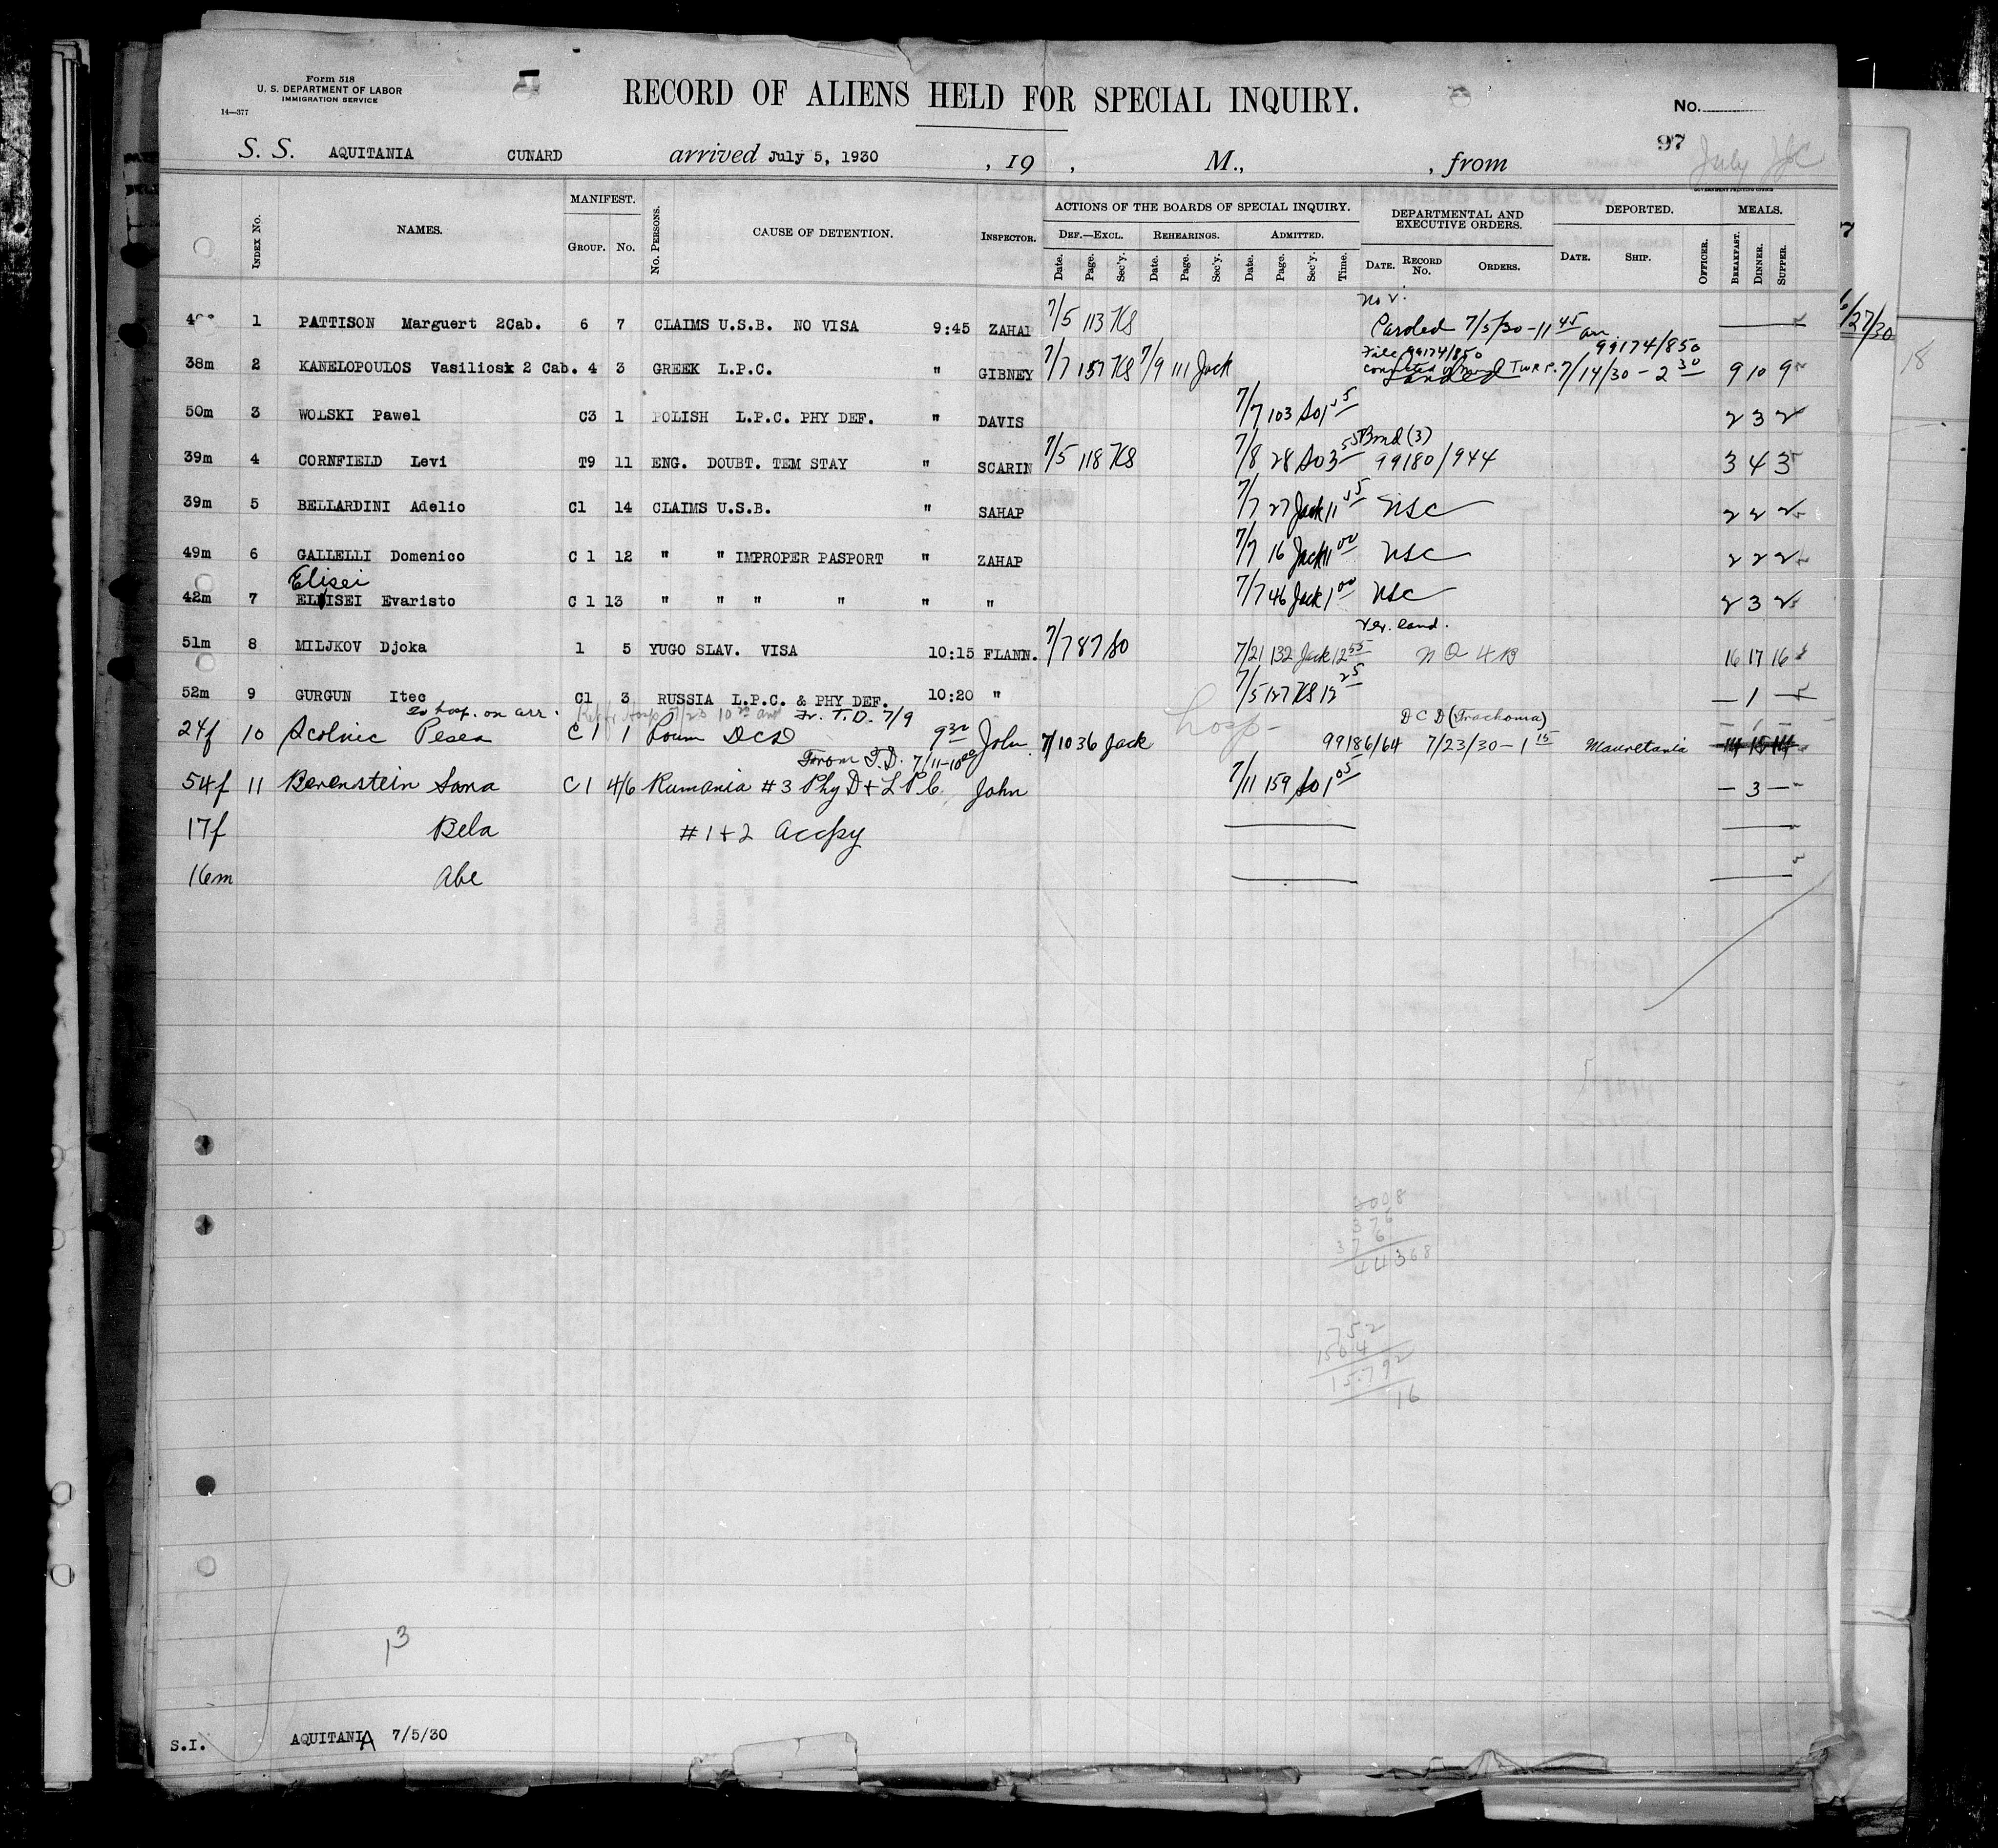 Form 518
U. S. DEPARTMENT OF LABOR
IMMIGRATION SERVICE
14—377
RECORD OF ALIENS HELD FOR SPECIAL INQUIRY.
No.
97
July
S. S. AQUITANIA CUNARD arrived July 5, 1930 , 19 , M., , from
GOVERNMENT PRINTING OFFICE
INDEX No. NAMES. MANIFEST. GROUP. No. No. PERSONS. CAUSE OF DETENTION. INSPECTOR.
ACTIONS OF THE BOARDS OF SPECIAL INQUIRY. DEPARTMENTAL AND EXECUTIVE ORDERS. DEPORTED. MEALS.
DEF.—EXCL. REHEARINGS. ADMITTED.
Date. Page. Sec'y. Date. Page. Sec'y. Date. Page. Sec'y. Time. DATE. RECORD No. ORDERS. DATE. SHIP. OFFICER. BREAKFAST. DINNER. SUPPER.
1 PATTISON Marguert 2Cab. 6 7 CLAIMS U.S.B. NO VISA 9:45 ZAHAP 7/5 113 KS Paroled 7/5/30 - 11 45 am
99174/850
File 99174/850
38m 2 KANELOPOULOS Vasilios 2 Cab. 4 3 GREEK L.P.C. " GIBNEY 7/7 157 KS 7/9 111 Jack 7/14/30 - 2 30 9 10 9
50m 3 WOLSKI Pawel C3 1 POLISH L.P.C. PHY DEF. " DAVIS 7/7 103 So 1 2 3 2
Bond (3)
39m 4 CORNFIELD Levi T9 11 ENG. DOUBT. TEM STAY " SCARIN 7/5 118 KS 7/8 28 So 3 55 99180/944 3 4 3
39m 5 BELLARDINI Adelio C1 14 CLAIMS U.S.B. " SAHAP 7/7 27 Jack 11 55 USC 2 2 2
49m 6 GALLELLI Domenico C 1 12 " " IMPROPER PASPORT " ZAHAP 7/7 16 Jack 11 00 USC 2 2 2
Elisei
42m 7 ELLISEI Evaristo C 1 13 " " " " " " 7/7 46 Jack 1 00 USC 2 3 2
Ver. land.
51m 8 MILJKOV Djoka 1 5 YUGO SLAV. VISA 10:15 FLANN. 7/7 87 So 7/21 132 Jack 12 55 16 17 16
52m 9 GURGUN Itec C1 3 RUSSIA L.P.C. & PHY DEF. 10:20 " 7/5 127 KS 12 25 — 1 —
To hosp. on arr. Fr. T.D. 7/9 hosp- DCD (Trachoma)
24f 10 Scolnic Pesea C 1 1 Roum DCD 9 30 John 7/10 36 Jack 99186/64 7/23/30 - 1 15 Mauretania 14 15 14
From T.D. 7/11-10 00
54f 11 Berenstein Sara C 1 4/6 Rumania #3 Phy D + L P C John 7/11 159 So 1 05 — 3 —
17f Bela #1 + 2 Accpy
16m Abe
2008
376
376
44368
752
1504
15.792
16
13
S.I. AQUITANIA 7/5/30
6/27/30
18